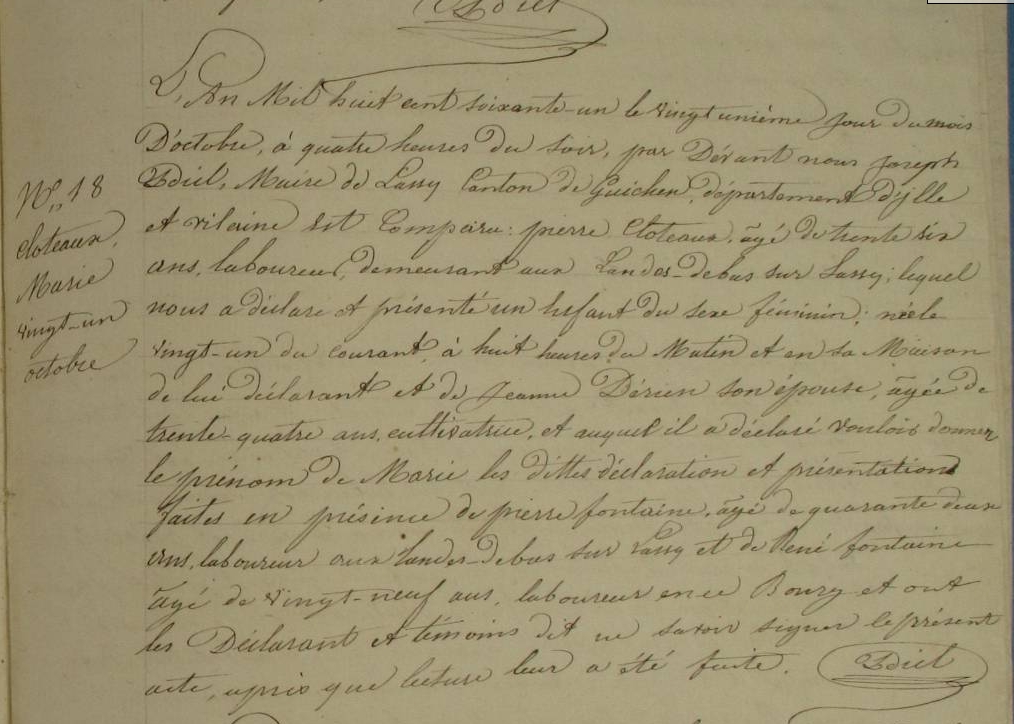 L'An Mil huit cent soixante-un le vingt unième jour du mois
D'octobre, à quatre heures du soir, par Dévant nous Joseph
Maire de Lassy Canton de Guichen, département d'ylle
et vilaine Est Comparu: pierre Cloteaux, âgé de trente six
ans, laboureur, demeurant aux Landes-debas sur Lassy; lequel
nous a déclaré et présenté un Enfant du sexe féminin; née le
vingt-un du courant, à huit heures du Matin et en sa Maison
de lui déclarant et de Jeanne Dérien son épouse, âgée de
trente-quatre ans, cultivatrice, et auquel il a déclaré vouloir donner
le prénom de Marie les dittes déclaration et présentation
faites en présence de pierre fontaine, âgé de quarante deux
ans, laboureur aux landes-debas sur Lassy et de René fontaine
âgé de vingt-neuf ans, laboureur en ce Bourg et ont
les Déclarant et témoins dit ne savoir signer le présent
acte, après que lecture leur a été faite.
N,, 18
Cloteaux,
Marie
vingt-un
octobre